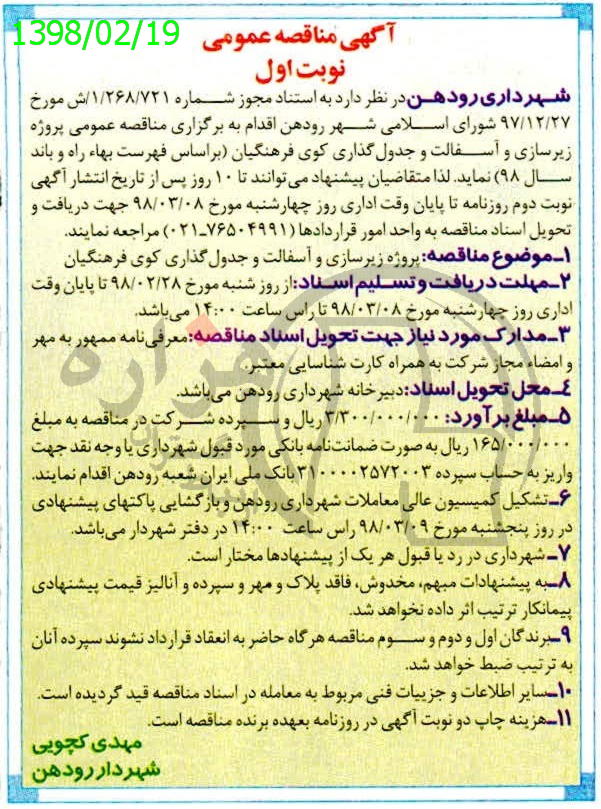 1398/02/19
آگهی مناقصه عمومی
نوبت اول
شهرداری رودهن در نظر دارد به استناد مجوز شماره ۱/۲۶۸/۷۲۱/ش مورخ
۹۷/۱۲/۲۷ شورای اسلامی شهر رودهن اقدام به برگزاری مناقصه عمومی پروژه
زیرسازی و آسفالت و جدول‌گذاری کوی فرهنگیان (براساس فهرست بهاء راه و باند
سال ۹۸) نماید. لذا متقاضیان پیشنهاد می‌توانند تا ۱۰ روز پس از تاریخ انتشار آگهی
نوبت دوم روزنامه تا پایان وقت اداری روز چهارشنبه مورخ ۹۸/۰۳/۰۸ جهت دریافت و
تحویل اسناد مناقصه به واحد امور قراردادها (۷۶۵۰۴۹۹۱-۰۲۱) مراجعه نمایند.
۱-موضوع مناقصه: پروژه زیرسازی و آسفالت و جدول‌گذاری کوی فرهنگیان
۲-مهلت دریافت و تسلیم اسناد: از روز شنبه مورخ ۹۸/۰۲/۲۸ تا پایان وقت
اداری روز چهارشنبه مورخ ۹۸/۰۳/۰۸ تا راس ساعت ۱۴:۰۰ می‌باشد.
۳-مدارک مورد نیاز جهت تحویل اسناد مناقصه: معرفی‌نامه ممهور به مهر
و امضاء مجاز شرکت به همراه کارت شناسایی معتبر.
۴-محل تحویل اسناد: دبیرخانه شهرداری رودهن می‌باشد.
۵-مبلغ برآورد: ۳/۳۰۰/۰۰۰/۰۰۰ ریال و سپرده شرکت در مناقصه به مبلغ
۱۶۵/۰۰۰/۰۰۰ ریال به صورت ضمانت‌نامه بانکی مورد قبول شهرداری یا وجه نقد جهت
واریز به حساب سپرده ۳۱۰۰۰۰۲۵۷۲۰۰۳ بانک ملی ایران شعبه رودهن اقدام نمایند.
۶-تشکیل کمیسیون عالی معاملات شهرداری رودهن و بازگشایی پاکتهای پیشنهادی
در روز پنجشنبه مورخ ۹۸/۰۳/۰۹ راس ساعت ۱۴:۰۰ در دفتر شهردار می‌باشد.
۷-شهرداری در رد یا قبول هر یک از پیشنهادها مختار است.
۸-به پیشنهادات مبهم، مخدوش، فاقد پلاک و مهر و سپرده و آنالیز قیمت پیشنهادی
پیمانکار ترتیب اثر داده نخواهد شد.
۹-برندگان اول و دوم و سوم مناقصه هرگاه حاضر به انعقاد قرارداد نشوند سپرده آنان
به ترتیب ضبط خواهد شد.
۱۰-سایر اطلاعات و جزییات فنی مربوط به معامله در اسناد مناقصه قید گردیده است.
۱۱-هزینه چاپ دو نوبت آگهی در روزنامه بعهده برنده مناقصه است.
مهدی کچویی
شهردار رودهن
هزاره